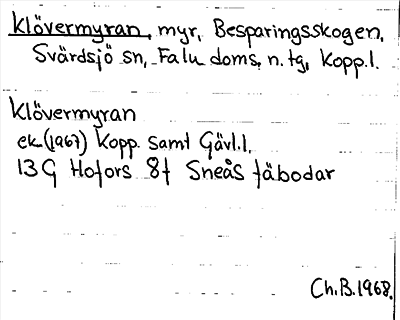 Klövermyran, myr, Besparingsskogen,
Svärdsjö sn, Falu doms. n. tg, Kopp.l.
Klövermyran
ek. (1967) Kopp. samt Gävl.l,
13G Hofors 8f Sneås fäbodar
Ch.B.1968.